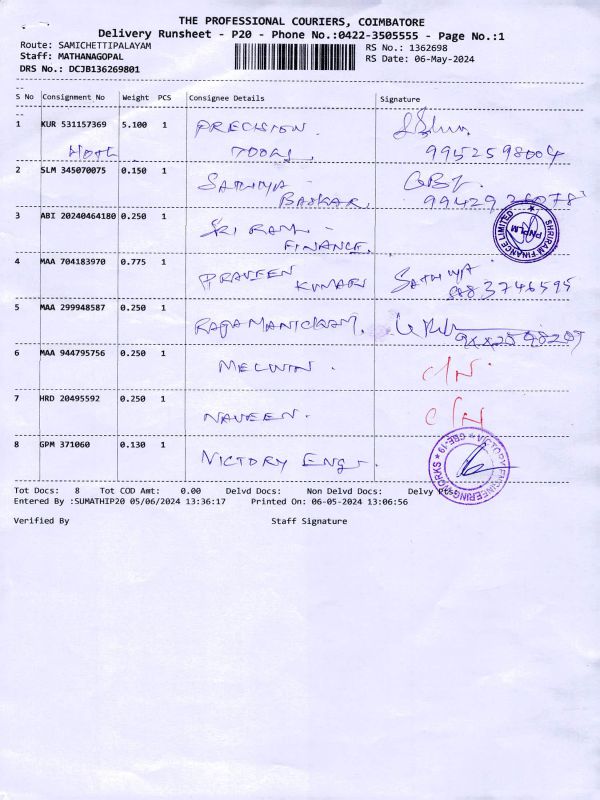 THE PROFESSIONAL COURIERS, COIMBATORE
Delivery Runsheet - P20 - Phone No.:0422-3505555 - Page No.:1
Route: SAMICHETTIPALAYAM
RS No.: 1362698
Staff: MATHANAGOPAL
RS Date: 06-May-2024
DRS No.: DCJB136269801
S No Consignment No Weight PCS Consignee Details Signature
1 KUR 531157369 5.100 1 PRECISION
TOOLS 9952598004
2 SLM 345070075 0.150 1 SATHIYA
BASKAR
3 ABI 20240464180 0.250 1 SRI RAM
FINANCE
SHRIRAM FINANCE LIMITED
PNPLM
4 MAA 704183970 0.775 1 PRAVEEN Sathiya
KUMAR 8883746595
5 MAA 299948587 0.250 1 RAGAMANICKAM
6 MAA 944795756 0.250 1 MELWIN. C/N.
7 HRD 20495592 0.250 1 NAVEEN. C/N
8 GPM 371060 0.130 1 VICTORY ENG.
VICTORY ENGINEERING WORKS * CBE-19 *
Tot Docs: 8 Tot COD Amt: 0.00 Delvd Docs: Non Delvd Docs: Delvy Pts:
Entered By :SUMATHIP20 05/06/2024 13:36:17 Printed On: 06-05-2024 13:06:56
Verified By Staff Signature